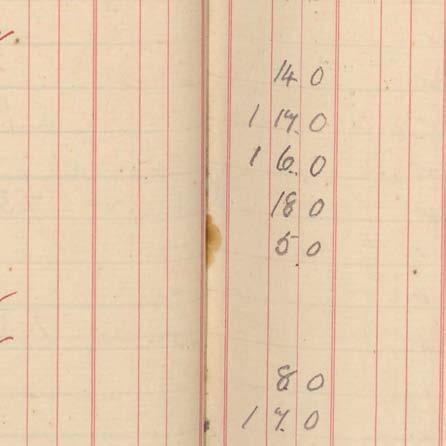 14 0
1 17 0
1 6 0
18 0
5 0
8 0
1 7 0